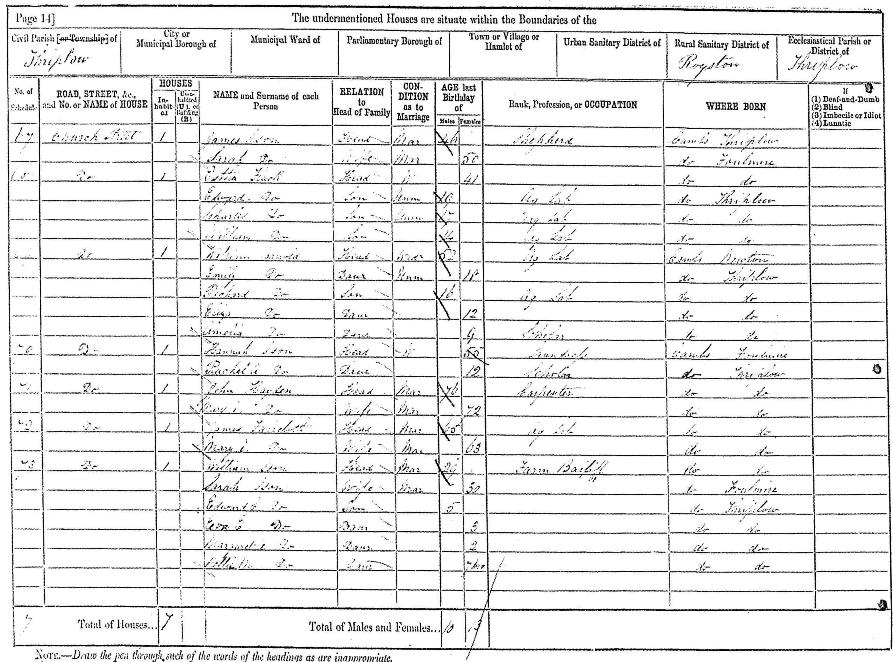 Page 14] The undermentioned Houses are situate within the Boundaries of the
Civil Parish [or Township] of City or Municipal Borough of Municipal Ward of Parliamentary Borough of Town or Village or Hamlet of Urban Sanitary District of Rural Sanitary District of Ecclesiastical Parish or District of
Thriplow Royston Thriplow
No. of Schedule ROAD, STREET, &c., and No. or NAME of HOUSE HOUSES Inhabited NAME and Surname of each Person RELATION to Head of Family CONDITION as to Marriage AGE last Birthday of Males Females Rank, Profession, or OCCUPATION WHERE BORN If (1) Deaf-and-Dumb (2) Blind (3) Imbecile or Idiot (4) Lunatic
67 Church Street 1 James Ison Head Mar 46 Shepherd Cambs Thriplow
Sarah Do Wife Mar 50 do Foulmire
Do 1 Head W 41 do do
Edward Do Son Unm 19 Ag Lab do Thriplow
Charles Do Son Unm Ag Lab do do
William Do Son Ag Lab do do
Do 1 Head Ag Lab Cambs Newton
Emily Do Daur Unm 18 do Thriplow
Richard Do Son 16 Ag Lab do do
Eliza Do Daur 12 do do
Do Daur 9 Scholar do do
70 Do 1 Hannah Ison Head W 55 Cambs Foulmire
Rachel Do Daur 12 Scholar do Thriplow
71 Do 1 John Head Mar 76 Carpenter do do
Do Wife Mar 72 do do
72 Do 1 James Head Mar 65 Ag Lab do do
Mary Do Wife Mar 63 do do
73 Do 1 William Ison Head Mar 29 Farm Bailiff do do
Sarah Ison Wife Mar 30 do Foulmire
Edward Do Son 5 do Thriplow
Do Daur 3 do do
Margaret Do Daur 2 do do
Do Daur 7mo do do
7 Total of Houses... 7 Total of Males and Females... 10 13
NOTE.—Draw the pen through such of the words of the headings as are inappropriate.